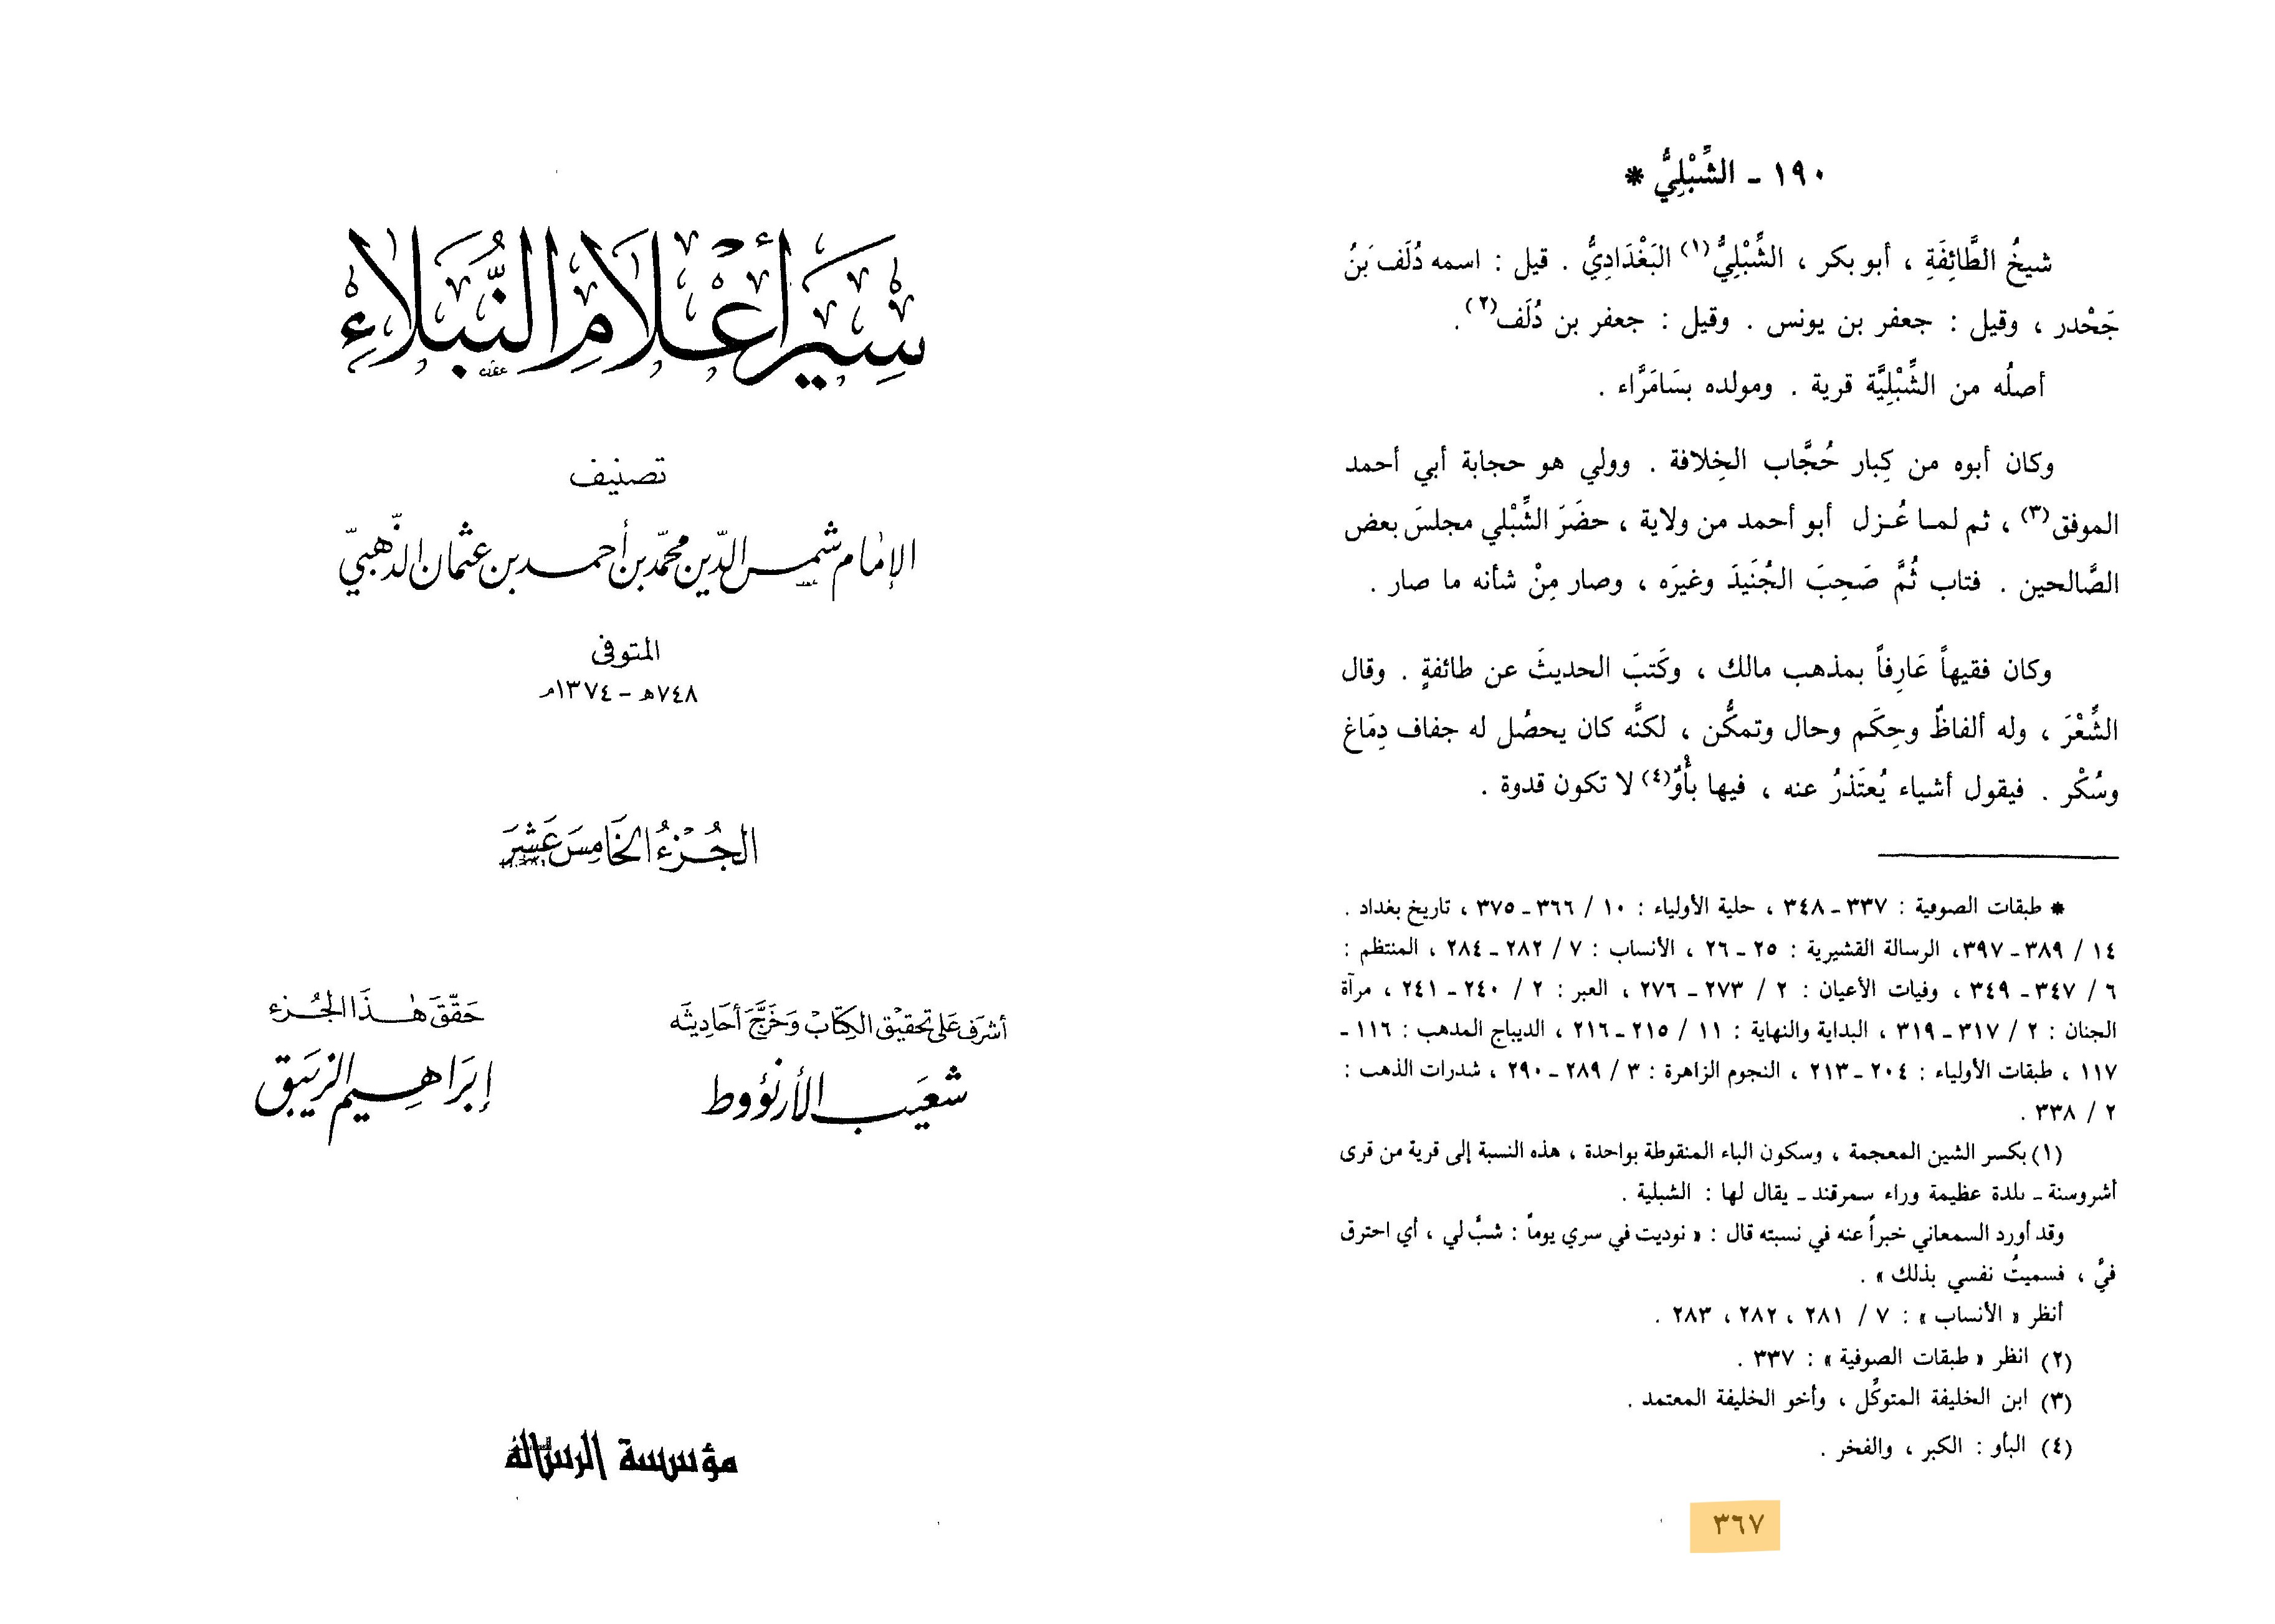 ١٩٠ - الشِّبْلِيُّ *
شيخُ الطَّائِفَةِ ، أبو بكر ، الشِّبْلِيُّ(١) البَغْدَادِيُّ . قيل : اسمه دُلَف بَنُ
جَحْدر ، وقيل : جعفر بن يونس . وقيل : جعفر بن دُلَف(٢) .
أصلُه من الشِّبْلِيَّة قرية . ومولده بسَامَرَّاء .
وكان أبوه من كِبار حُجَّاب الخِلافة . وولي هو حجابة أبي أحمد
الموفق(٣) ، ثم لمـا عُـزل أبو أحمد من ولاية ، حضَرَ الشِّبْلي مجلسَ بعض
الصَّالحين . فتاب ثُمَّ صَحِبَ الجُنَيدَ وغيرَه ، وصار مِنْ شأنه ما صار .
وكان فقيهاً عَارِفاً بمذهب مالك ، وكَتبَ الحديثَ عن طائفةٍ . وقال
الشِّعْرَ ، وله ألفاظٌ وحِكَم وحال وتمكُّن ، لكنَّه كان يحصُل له جفاف دِمَاغ
وسُكْر . فيقول أشياء يُعتَذرُ عنه ، فيها بأْوٌ(٤) لا تكون قدوة .
* طبقات الصوفية : ٣٣٧ - ٣٤٨ ، حلية الأولياء : ١٠ / ٣٦٦ - ٣٧٥ ، تاريخ بغداد .
١٤ / ٣٨٩ - ٣٩٧، الرسالة القشيرية : ٢٥ - ٢٦ ، الأنساب : ٧ / ٢٨٢ - ٢٨٤ ، المنتظم :
٦ / ٣٤٧ - ٣٤٩ ، وفيات الأعيان : ٢ / ٢٧٣ - ٢٧٦ ، العبر : ٢ / ٢٤٠ - ٢٤١ ، مرآة
الجنان : ٢ / ٣١٧ - ٣١٩ ، البداية والنهاية : ١١ / ٢١٥ - ٢١٦ ، الديباج المدهب : ١١٦ -
١١٧ ، طبقات الأولياء : ٢٠٤ - ٢١٣ ، النجوم الزاهرة : ٣ / ٢٨٩ - ٢٩٠ ، شدرات الذهب :
٢ / ٣٣٨ .
(١) بكسر الشين المعجمة ، وسكون الباء المنقوطة بواحدة ، هذه النسبة إلى قرية من قرى
أشروسنة - بلدة عظيمة وراء سمرقند - يقال لها : الشبلية .
وقد أورد السمعاني خبراً عنه في نسبته قال : « نوديت في سري يوماً : شبَّ لي ، أي احترق
فيَّ ، فسميتُ نفسي بذلك » .
أنظر « الأنساب » : ٧ / ٢٨١ ، ٢٨٢ ، ٢٨٣ .
(٢) انظر « طبقات الصوفية » : ٣٣٧ .
(٣) ابن الخليفة المتوكِّل ، وأخو الخليفة المعتمد .
(٤) البأو : الكبر ، والفخر .
٣٦٧
سِيَر أَعْلَامِ النُّبَلَاءِ
تصنيف
الإمام شمس الدّين محمّد بن أحمد بن عثمان الذّهبيّ
المتوفى
٧٤٨هـ - ١٣٧٤م
الجُزءُ الخَامِسَ عَشَرَ
أشرَف عَلى تحقيق الكِتَاب وَخَرَّجَ أحَاديثَه
شعَيب الأرنؤوط
حَقّقَ هٰذَا الجُزء
إبرَاهيم الزيبق
مؤسسة الرسالة